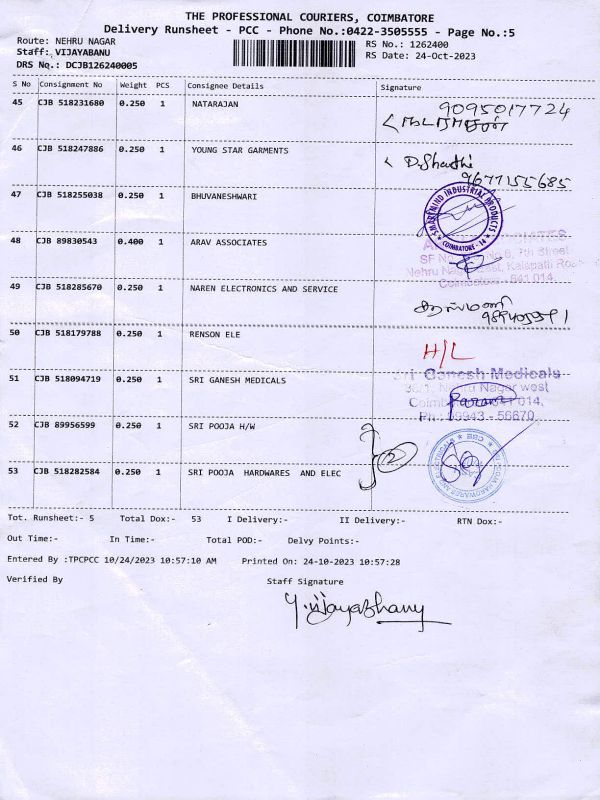 THE PROFESSIONAL COURIERS, COIMBATORE
Delivery Runsheet - PCC - Phone No.:0422-3505555 - Page No.:5
Route: NEHRU NAGAR
RS No.: 1262400
Staff: VIJAYABANU
RS Date: 24-Oct-2023
DRS No.: DCJB126240005
S No Consignment No Weight PCS Consignee Details Signature
45 CJB 518231680 0.250 1 NATARAJAN 9095017724
நடராஜன்
46 CJB 518247886 0.250 1 YOUNG STAR GARMENTS
9677155685
47 CJB 518255038 0.250 1 BHUVANESHWARI
SMARTMIND INDUSTRIAL PRODUCTS
COIMBATORE - 14
48 CJB 89830543 0.400 1 ARAV ASSOCIATES
7th Street
Nehru Nagar East, Kalapatti Road
Coimbatore - 641 014.
49 CJB 518285670 0.250 1 NAREN ELECTRONICS AND SERVICE
50 CJB 518179788 0.250 1 RENSON ELE H/L
51 CJB 518094719 0.250 1 SRI GANESH MEDICALS
Sri Ganesh Medicals
Nehru Nagar west
Coimbatore 641 014.
52 CJB 89956599 0.250 1 SRI POOJA H/W
2
53 CJB 518282584 0.250 1 SRI POOJA HARDWARES AND ELEC
Tot. Runsheet:- 5 Total Dox:- 53 I Delivery:- II Delivery:- RTN Dox:-
Out Time:- In Time:- Total POD:- Delvy Points:-
Entered By :TPCPCC 10/24/2023 10:57:10 AM Printed On: 24-10-2023 10:57:28
Verified By Staff Signature
Y.Vijayabhanu